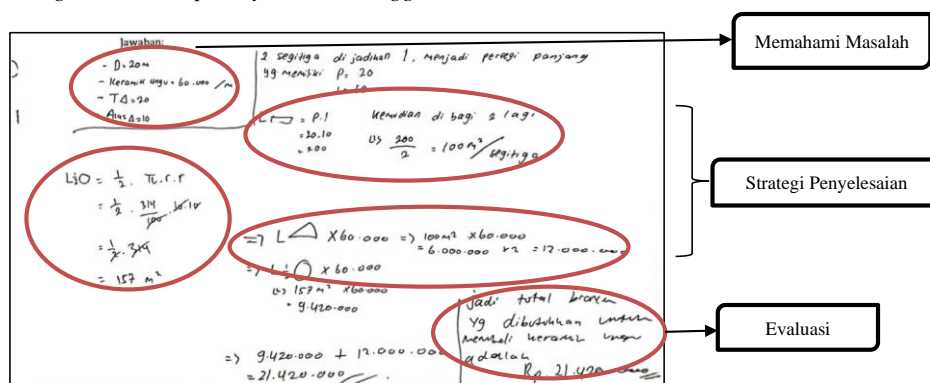 Jawaban:
- D = 20 m
- Keramik ungu = 60.000 /m
- T Δ = 20
Alas Δ = 10
2 segitiga di jadikan 1, menjadi persegi panjang
yg memiliki P = 20
L▭ = P.l
= 20.10
= 200
Kemudian di bagi 2 lagi
=> 200/2 = 100 m²/segitiga
L½O = ½ . π.r.r
= ½ . 314/100 . 10.10
= ½ . 314
= 157 m²
=> L △ x 60.000 => 100 m² x 60.000
= 6.000.000 x 2 = 12.000.000
=> L ½ O x 60.000
=> 157 m² x 60.000
= 9.420.000
=> 9.420.000 + 12.000.000
= 21.420.000
jadi total biaya
yg dibutuhkan untuk
membeli keramik ungu
adalah
Rp. 21.420.000
Memahami Masalah
Strategi Penyelesaian
Evaluasi